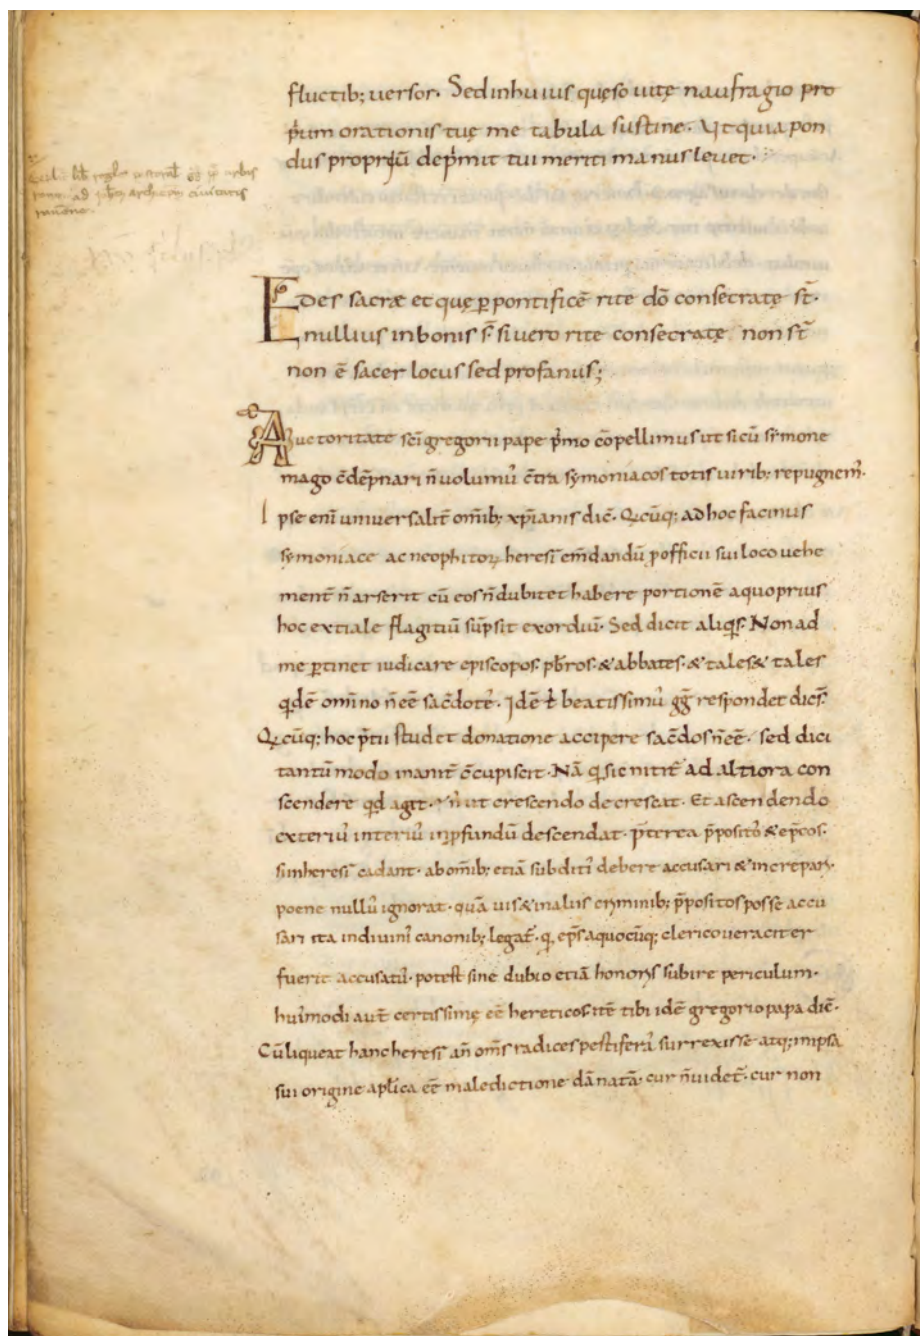 fluctib; uersor. Sed inhuius quęso uitę naufragio pro
p̄um orationis tuę me tabula sustine. Vt quia pon
dus propriū dep̄mit tui meriti manus leuet.
ad
ciuitatis
Edes sacræ et quę ꝑ pontificē rite dō consecratę st̄.
nullius in bonis s̄. si uero rite consecratę non st̄
non ē sacer locus sed profanus;
Auctoritate sc̄i gregorii pape p̄mo cōpellimus ut si cū simone
mago cōdēpnari n̄ uolumꝰ c̄tra symoniacos totis uirib; repugnemꝰ.
Ipse enī uniuersalit̄ om̄ib; xp̄ianis dic̄. Q̇cūq; ad hoc facinus
symoniace ac neophitoꝝ heresī em̄dandū ꝓ officii sui loco uehe
ment̄ n̄ arserit cū eos n̄ dubitet habere portionē a quo prius
hoc extiale flagitiū sūpsit exordiū. Sed dicit aliq̇s. Non ad
me ꝑtinet iudicare episcopos. pb̄ros. & abbates. & tales & tales
q̇dē om̄ino n̄ eē sac̄dotē. Idē beatissimꝰ gḡ respondet dicēs.
Q̇cūq; hoc p̄tii studet donatione accipere sac̄dos n̄ eē. sed dici
tantū modo inanit̄ c̄cupiscit. Nā q̇ sic nitit̄ ad altiora con
scendere qd̄ agit. n̄ ut crescendo decrescat. Et ascendendo
exteriꝰ interiꝰ in ꝓfundū descendat. p̄terea p̄positos & ep̄cos.
si in heresī cadant. ab om̄ib; etiā subditis debere accusari & increpari.
poene nullꝰ ignorat. quā uis & in aliis criminib; p̄positos posse accu
sari ita in diuinis canonib; legat̄. q̇ ep̄s a quocūq; clerico ueraciter
fuerit accusatꝰ. potest sine dubio etiā honoris subire periculum.
huiꝰmodi aut̄ certissimę eē hereticos. itē tibi idē gregorio papa dic̄.
Cū liqueat hanc heresī an̄ om̄s radices pestiferā surrexisse atq; in ipsa
sui origine apl̄ica eē maledictione dānatā. cur n̄ uidet̄. cur non